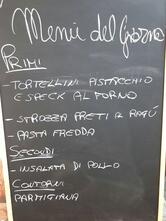 Menù del Giorno
PRIMI
- TORTELLINI PISTACCHIO
E SPECK AL FORNO
- STROZZA PRETI AL RAGU
- PASTA FREDDA
SECONDI
- INSALATA DI POLLO
CONTORNI
PARMIGIANA